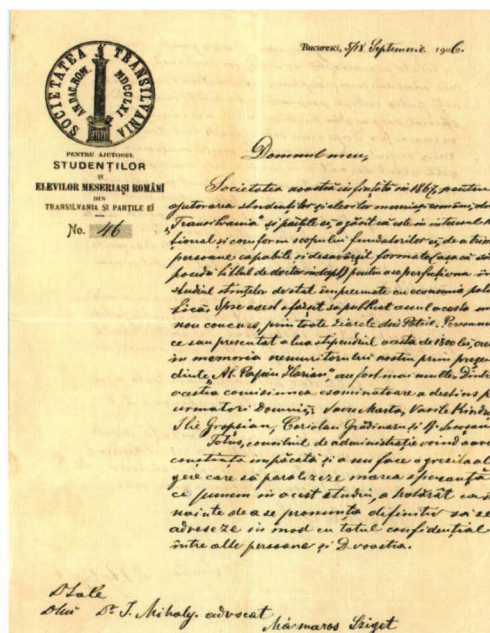 SOCIETATEA TRANSILVANIA
AN. DAC. ROM. MDCCLXI
PENTRU AJUTORUL
STUDENȚILOR
ȘI
ELEVILOR MESERIAȘI ROMÂNI
DIN
TRANSILVANIA ȘI PĂRȚILE EI
No. 46
Bucuresci, 5/18 Septemvrie 1906.
Domnul meu,
Societatea noastră înființată in 1867, pentru
ajutorarea studenților și elevilor meseriași români, din
„Transilvania" și părțile ei, a găsit că este in interesul na
țional și conform scopului fundatorilor ei, de a trimi
persoane capabile și desăvârșit formate (așa că să
poseadă titlul de doctor in drept) pentru a se perfecționa în
studiul științelor de stat împreunate cu economia poli
tică. Spre acest sfârșit s'a publicat anul acesta un
nou concurs, prin toate ziarele din Patrie. Persoane
ce sau presentat a lua stipendiul acesta de 1800 lei,
in memoria nemuritorului nostru prim preșe
dinte, „Al. Papiu Ilarian", au fost mai multe. Dintre
acestia comisiunea esaminatoare a destins p
urmatori Domni: Savu Marta, Vasile
Ilie Gropsian, Coriolan Grădinaru și
Totuș, consiliul de administrație voind a avea
conștiința împăcată și a nu face o greșită al
gere care să paralizeze marea speranță
ce punem in acest studiu, a hotărât ca
nainte de a se pronunța definitiv să se
adreseze in mod cu totul confidențial
între alte persoane și Dvoastra.
DSale
Dlui Dr. I. Mihaly. advocat
Mármaros Sziget